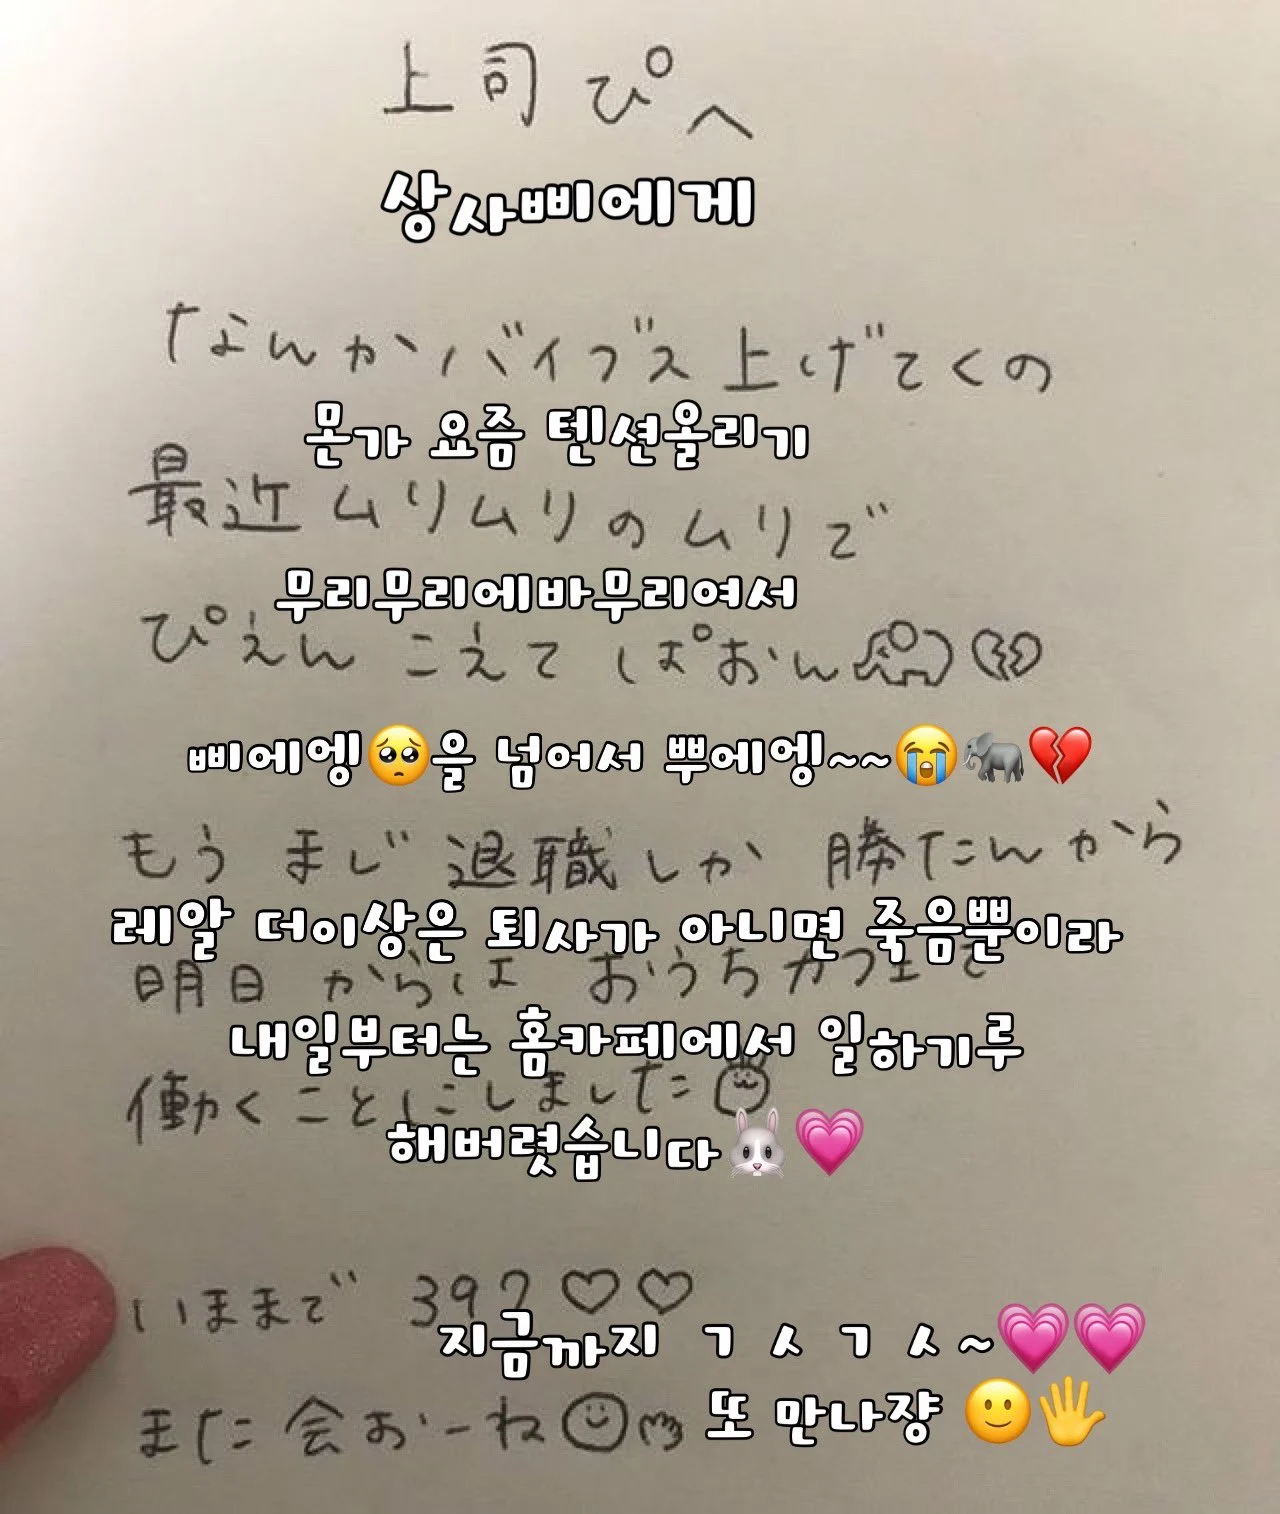 上司ぴへ
상사삐에게
なんかバイブス上げてくの
몬가 요즘 텐션올리기
最近ムリムリのムリで
무리무리에바무리여서
ぴえんこえてぱおん🐘💔
삐에엥🥺을 넘어서 뿌에엥~~😭🐘💔
もう まじ 退職しか 勝たんから
레알 더이상은 퇴사가 아니면 죽음뿐이라
明日からは おうちカフェで
내일부터는 홈카페에서 일하기루
働くことにしました
해버렷습니다🐰💗
いままで 392♡♡
지금까지 ㄱㅅㄱㅅ~💗💗
また会おーね
또 만나쟝 🙂🖐